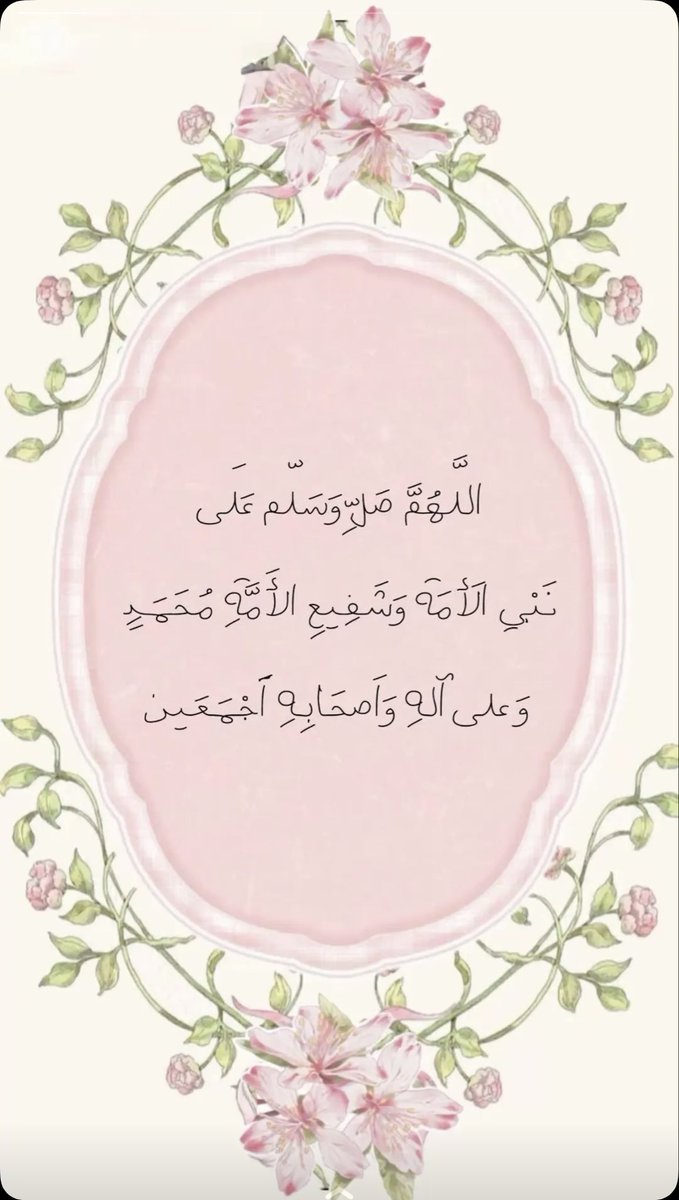 اللَّهُمَّ صَلِّ وَسَلّم عَلَى
نَبْي الَأمَة وَشَفِيعِ الأَمَّةِ مُحَمَدٍ
وَعلى آلهِ وَاَصحَابِهِ اَجْمَعَين